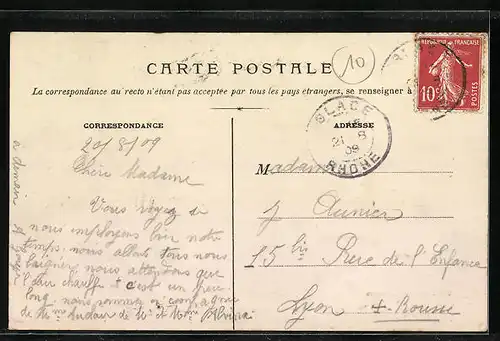 10
CARTE POSTALE
La correspondance au recto n'étant pas acceptée par tous les pays étrangers, se renseigner à
REPUBLIQUE FRANÇAISE
10c
POSTES
CORRESPONDANCE
ADRESSE
GLACE
21 8
09
RHONE
20/8/09
Chère Madame
Vous voyez si
nous employons bien notre
temps. nous allons tous nous
baigner nous attendons que
l'air chauffe et c'est un peu
long nous sommes en compagnie
de Mme de Mr et Mme
Madame
J Aunier
15 bis Rue de l'Enfance
Lyon + Rousse